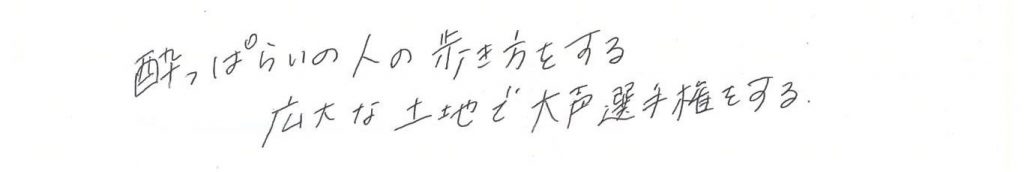 酔っぱらいの人の歩き方をする
広大な土地で大声選手権をする.